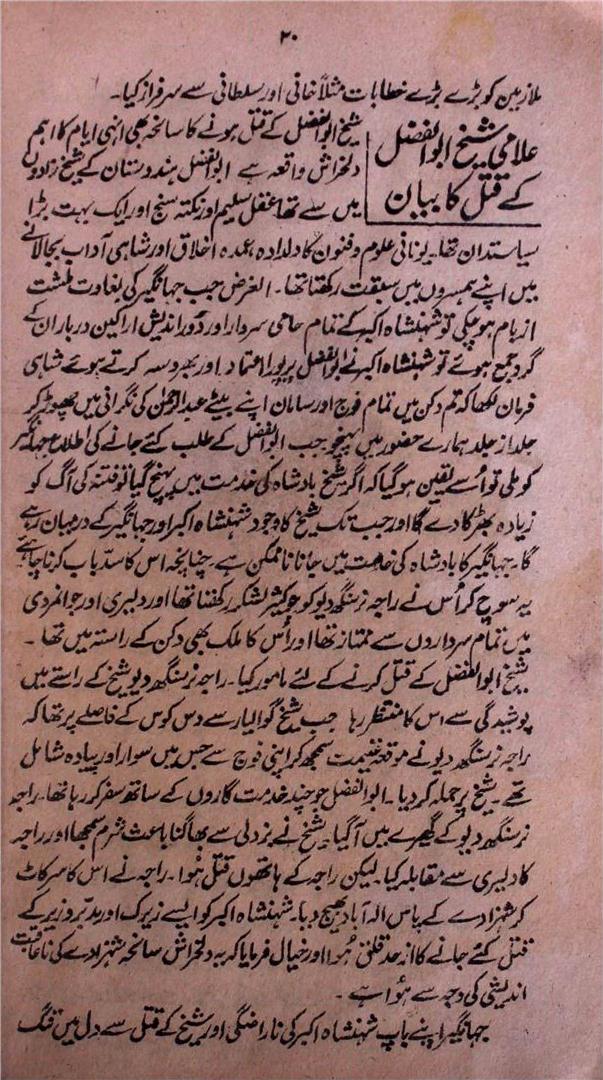 ۲۰
ملازمین کو بڑے بڑے خطابات مثلاً خانی اور سلطانی سے سرفراز کیا۔
علامی شیخ ابوالفضل
کے قتل کا بیان
شیخ ابوالفضل کے قتل ہونے کا سانحہ بھی انہی ایام کا اہم
دلخراش واقعہ ہے ابوالفضل ہندوستان کے شیخ زادوں
میں سے تھا عقل سلیم اور نکتہ سنج اور ایک بہت بڑا
سیاستدان تھا۔ یونانی علوم و فنون کا دلدادہ عمدہ اخلاق اور شاہی آداب بجا لانے
میں اپنے ہمسروں میں سبقت رکھتا تھا۔ الغرض جب جہانگیر کی بغاوت طشت
از بام ہو چکی تو شہنشاہ اکبر کے تمام حامی سردار اور دور اندیش اراکین دربار ان کے
گرد جمع ہوئے تو شہنشاہ اکبر نے ابوالفضل پر پورا اعتماد اور بھروسہ کرتے ہوئے شاہی
فرمان لکھا کہ تم دکن میں تمام فوج اور سامان اپنے بیٹے عبدالرحمٰن کی نگرانی میں چھوڑ کر
جلد از جلد ہمارے حضور میں پہنچو جب ابوالفضل کے طلب کئے جانے کی اطلاع جہانگیر
کو ملی تو اُسے یقین ہو گیا کہ اگر شیخ بادشاہ کی خدمت میں پہنچ گیا تو فتنہ کی آگ کو
زیادہ بھڑکا دے گا اور جب تک شیخ کا وجود شہنشاہ اکبر اور جہانگیر کے درمیان رہے
گا۔ جہانگیر کا بادشاہ کی خدمت میں جانا ناممکن ہے۔ چنانچہ اس کا سدّ باب کرنا چاہئے
یہ سوچ کر اُس نے راجہ نرسنگھ دیو کو جو کثیر لشکر رکھتا تھا اور دلیری اور جوانمردی
میں تمام سرداروں سے ممتاز تھا اور اُس کا ملک بھی دکن کے راستہ میں تھا۔
شیخ ابوالفضل کے قتل کرنے کے لئے مامور کیا۔ راجہ نرسنگھ دیو شیخ کے راستے میں
پوشیدگی سے اس کا منتظر رہا جب شیخ گوالیار سے دس کوس کے فاصلے پر تھا کہ
راجہ نرسنگھ دیو نے موقعہ غنیمت سمجھ کر اپنی فوج سے جس میں سوار اور پیادہ شامل
تھے۔ شیخ پر حملہ کر دیا۔ ابوالفضل جو چند خدمت گاروں کے ساتھ سفر کر رہا تھا۔ راجہ
نرسنگھ دیو کے گھیرے میں آ گیا۔ شیخ نے بزدلی سے بھاگنا باعث شرم سمجھا اور راجہ
کا دلیری سے مقابلہ کیا۔ لیکن راجہ کے ہاتھوں قتل ہُوا۔ راجہ نے اس کا سر کاٹ
کر شہزادے کے پاس الہ آباد بھیج دیا۔ شہنشاہ اکبر کو ایسے زیرک اور مدبّر وزیر کے
قتل کئے جانے کا از حد قلق ہُوا اور خیال فرمایا کہ یہ دلخراش سانحہ شہزادے کی ناعاقبت
اندیشی کی وجہ سے ہُوا ہے۔
جہانگیر اپنے باپ شہنشاہ اکبر کی ناراضگی اور شیخ کے قتل سے دل میں تنگ